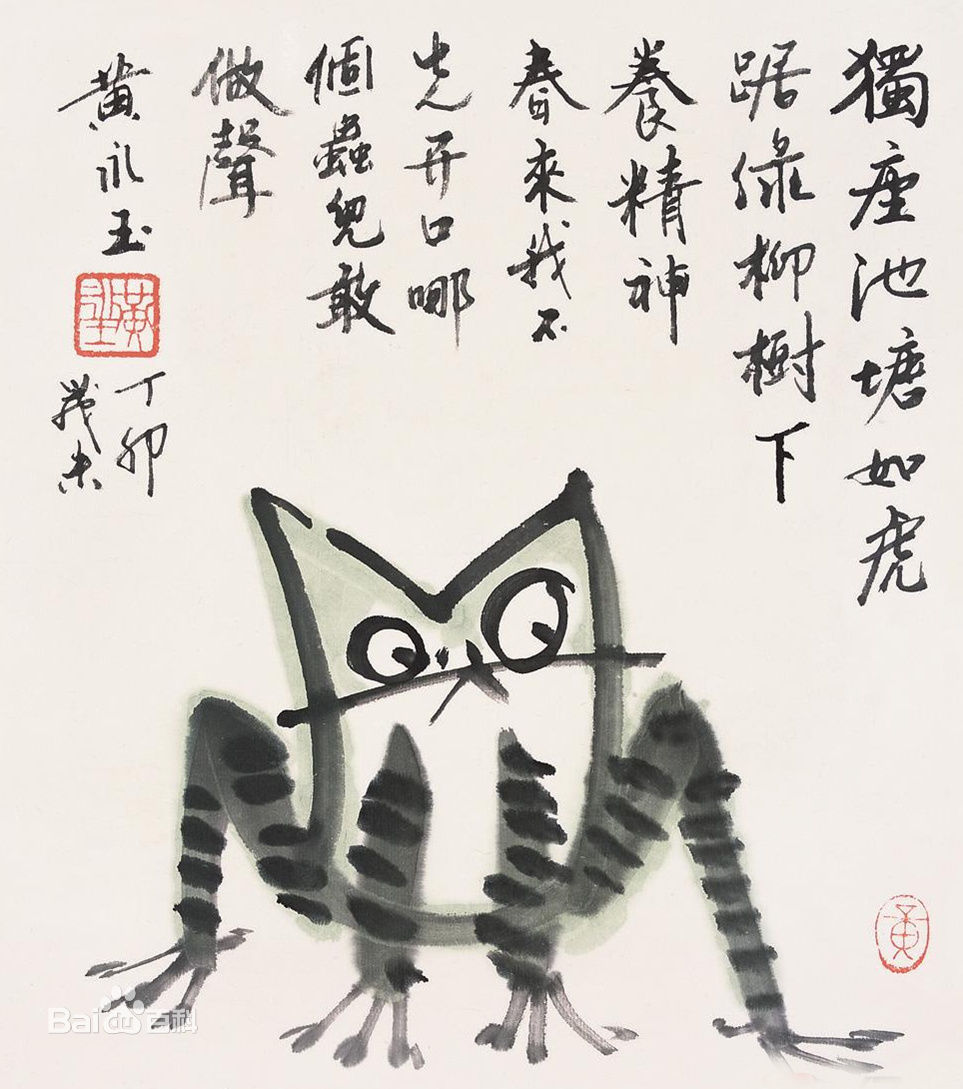 獨座池塘如虎
踞绿柳樹下
養精神
春來我不
先开口哪
個蟲兒敢
做聲
黄永玉
丁卯
歲末
黄
Baidu百科